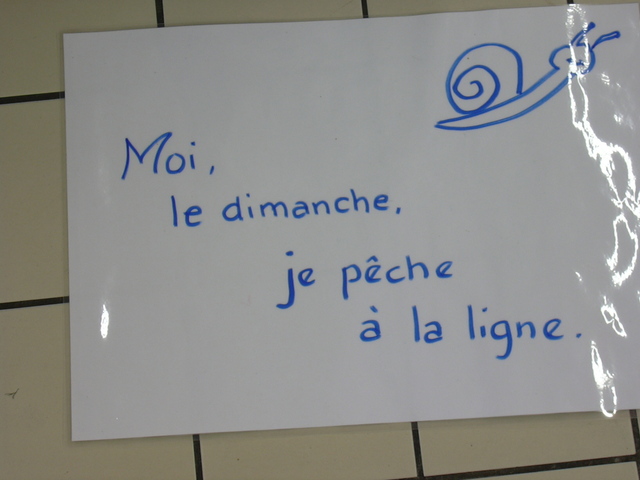 Moi,
le dimanche,
je pêche
à la ligne.